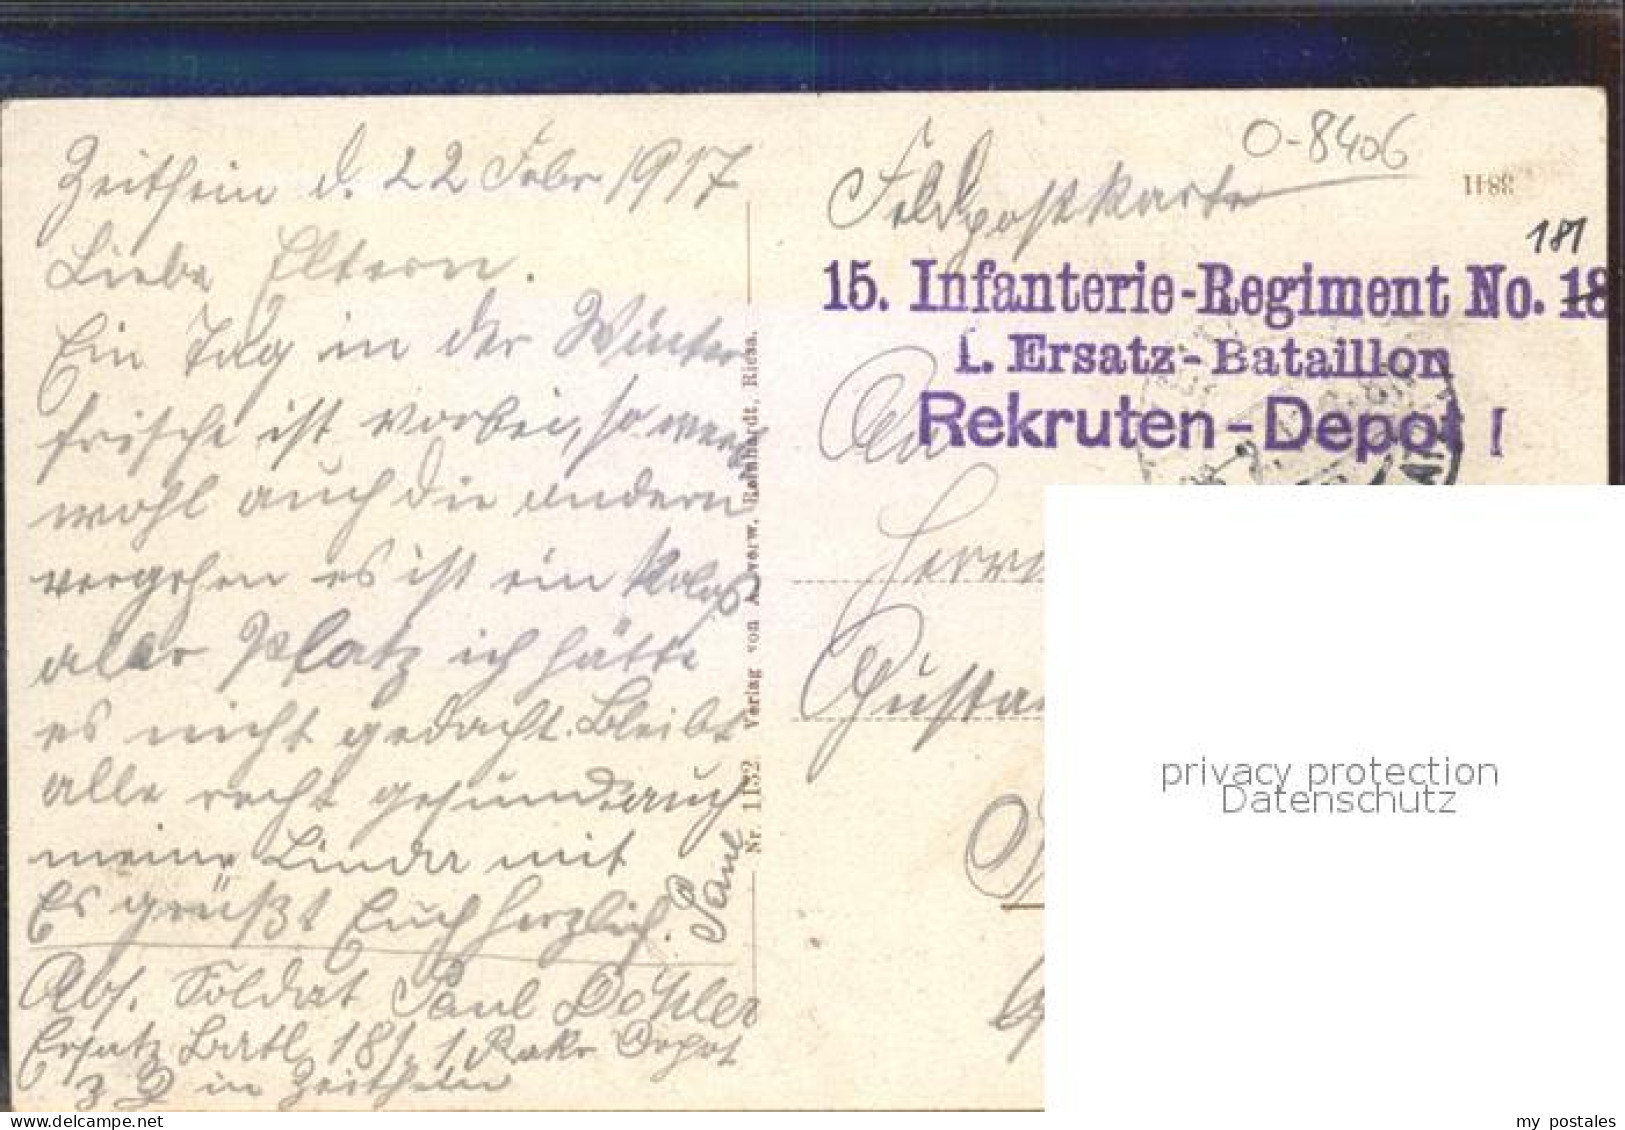 Zeithein d. 22 Febr 1917
Liebe Eltern.
Ein Tag in der Winter
frische ist vorbei, so werd
wohl auch die andern
vergehen es ist ein
aller Platz ich hätte
es nicht gedacht. Bleibt
alle recht gesund auch
meine Linda mit
Es grüßt Euch herzlich. Paul
Abs. Soldat Paul Döhler
Ersatz Batl 181. 1. Rekr Depot
z Z in Zeithein
Nr. 1132 Verlag von Reinhardt, Riesa.
O-8406
Feldpostkarte
1188
181
15. Infanterie-Regiment No. 18
I. Ersatz-Bataillon
Rekruten-Depot I
An
Herrn
Gusta
privacy protection
Datenschutz
my postales